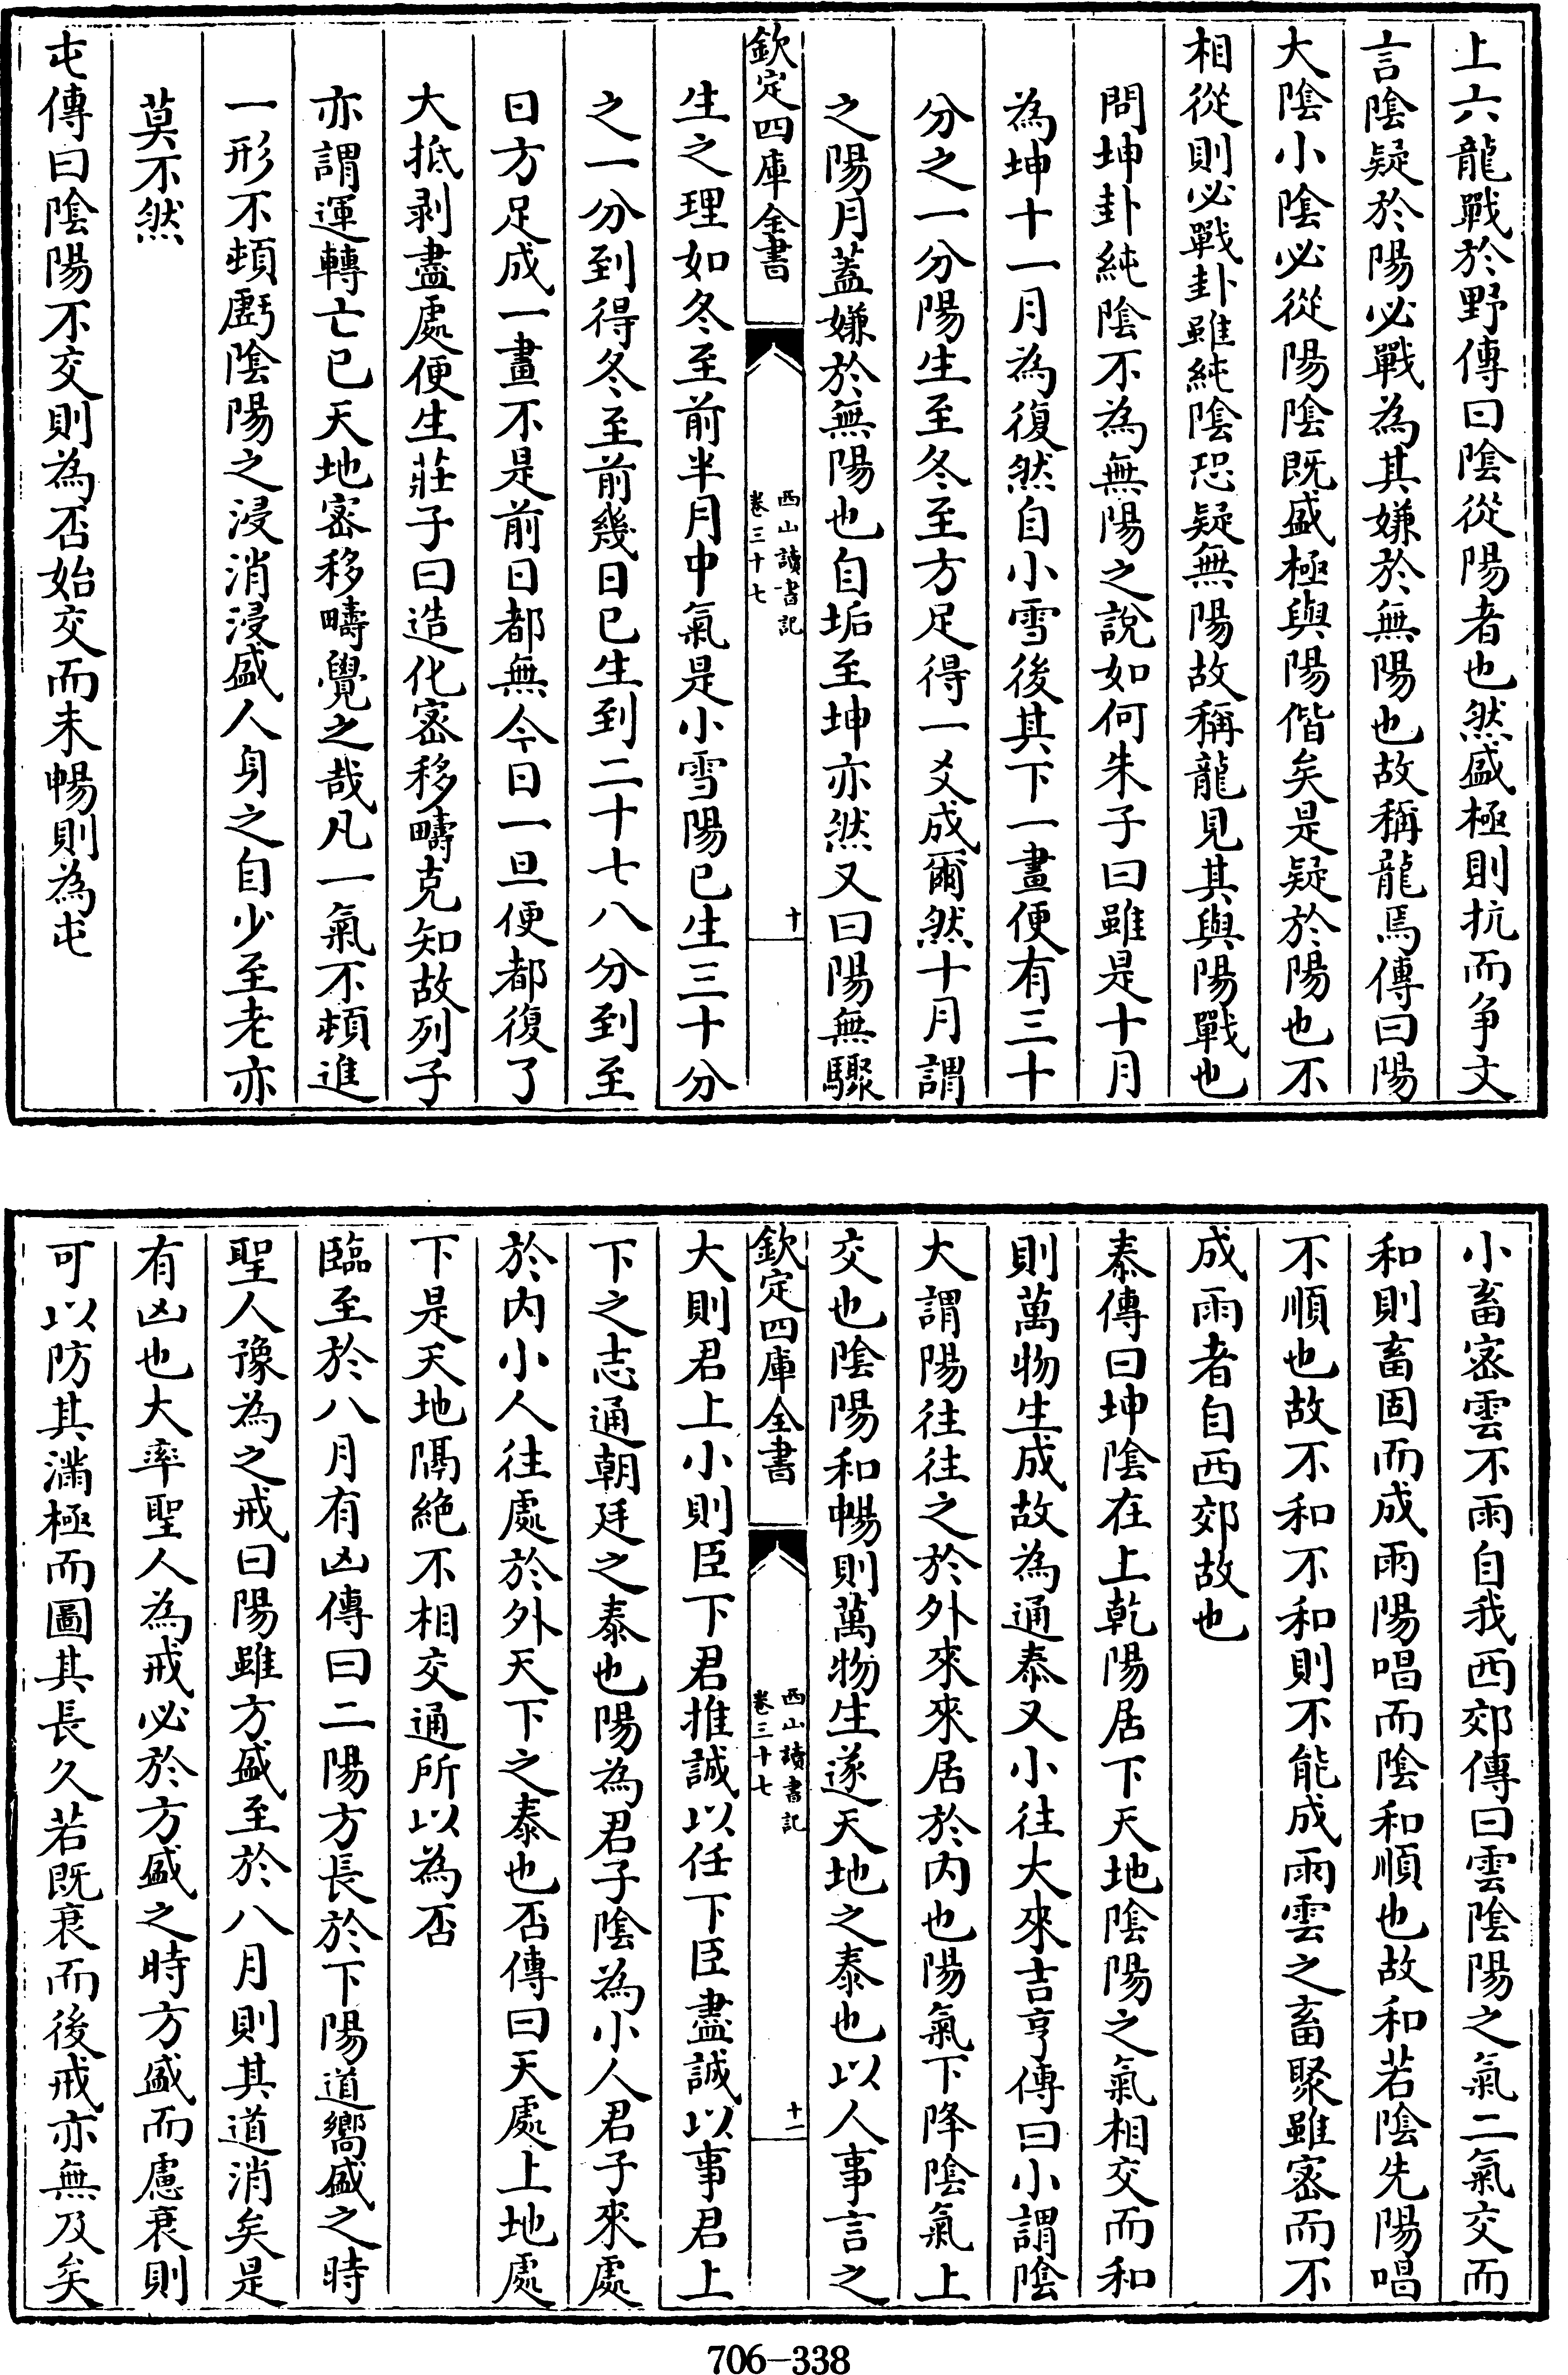 上六龍戰於野傳曰陰從陽者也然盛極則抗而争文
言陰疑於陽必戰為其嫌於無陽也故稱龍焉傳曰陽
大陰小陰必從陽陰既盛極與陽偕矣是疑於陽也不
相從則必戰卦雖純陰恐疑無陽故稱龍見其與陽戰也
問坤卦純陰不為無陽之說如何朱子曰雖是十月
為坤十一月為復然自小雪後其下一畫便有三十
分之一分陽生至冬至方足得一爻成爾然十月謂
之陽月蓋嫌於無陽也自垢至坤亦然又曰陽無驟
欽定四庫全書
西山讀書記
卷三十七
十
生之理如冬至前半月中氣是小雪陽已生三十分
之一分到得冬至前幾日已生到二十七八分到至
日方足成一畫不是前日都無今日一旦便都復了
大抵剥盡處便生莊子曰造化密移疇克知故列子
亦謂運轉亡已天地密移疇覺之哉凡一氣不頓進
一形不頓虧陰陽之浸消浸盛人身之自少至老亦
莫不然
屯傳曰陰陽不交則為否始交而未暢則為屯
小畜密雲不雨自我西郊傳曰雲陰陽之氣二氣交而
和則畜固而成雨陽唱而陰和順也故和若陰先陽唱
不順也故不和不和則不能成雨雲之畜聚雖密而不
成雨者自西郊故也
泰傳曰坤陰在上乾陽居下天地陰陽之氣相交而和
則萬物生成故為通泰又小往大來吉亨傳曰小謂陰
大謂陽往往之於外來來居於内也陽氣下降陰氣上
交也陰陽和暢則萬物生遂天地之泰也以人事言之
欽定四庫全書
西山讀書記
卷三十七
十一
大則君上小則臣下君推誠以任下臣盡誠以事君上
下之志通朝廷之泰也陽為君子陰為小人君子來處
於内小人往處於外天下之泰也否傳曰天處上地處
下是天地隔絶不相交通所以為否
臨至於八月有凶傳曰二陽方長於下陽道嚮盛之時
聖人豫為之戒曰陽雖方盛至於八月則其道消矣是
有凶也大率聖人為戒必於方盛之時方盛而慮衰則
可以防其滿極而圖其長久若既衰而後戒亦無及矣
706-338